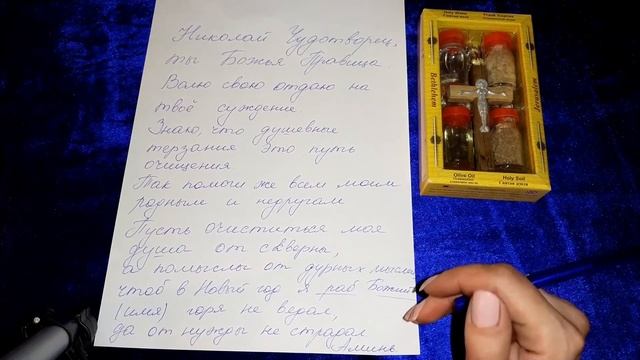 Николай Чудотворец,
ты Божья Правица.
Волю свою отдаю на
твоё суждение.
Знаю, что душевные
терзания это путь
очищения
Так помоги же всем моим
родным и недругам
Пусть очиститься моя
душа от скверны,
а помыслы от дурных мыслей
чтоб в Новый год я раб Божий
(имя) горя не ведал,
да от нужды не страдал
Аминь
Holy Water
Bethlehem
Jerusalem
Olive Oil
Holy Soil
Святая земля